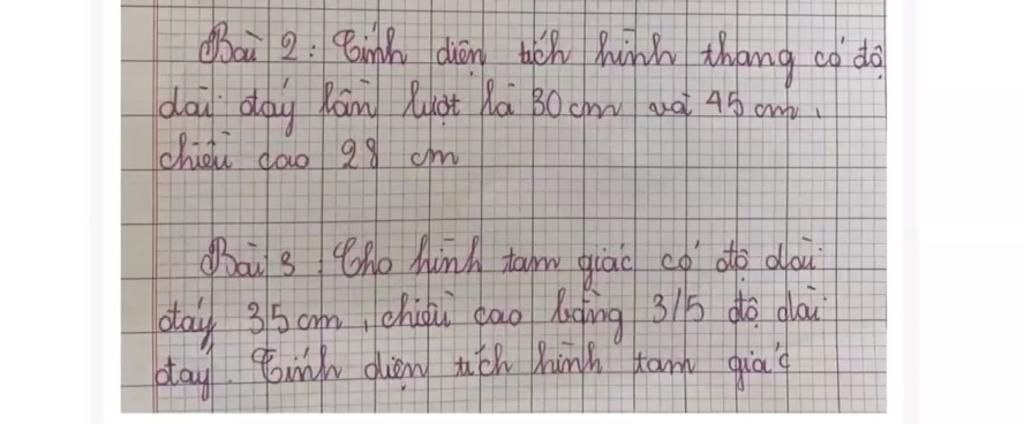 Bài 2: Tính diện tích hình thang có độ
dài đáy lần lượt là 30 cm và 45 cm,
chiều cao 28 cm
Bài 3: Cho hình tam giác có độ dài
đáy 35 cm, chiều cao bằng 3/5 độ dài
đáy. Tính diện tích hình tam giác